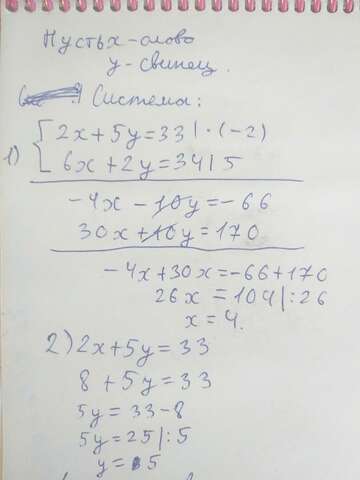 Пусть х - олово
у - свинец.
Система:
1) { 2х + 5у = 33 | · (-2)
6х + 2у = 34 | 5
-4х - 10у = -66
30х + 10у = 170
-4х + 30х = -66 + 170
26х = 104 | : 26
х = 4.
2) 2х + 5у = 33
8 + 5у = 33
5у = 33 - 8
5у = 25 | : 5
у = 5